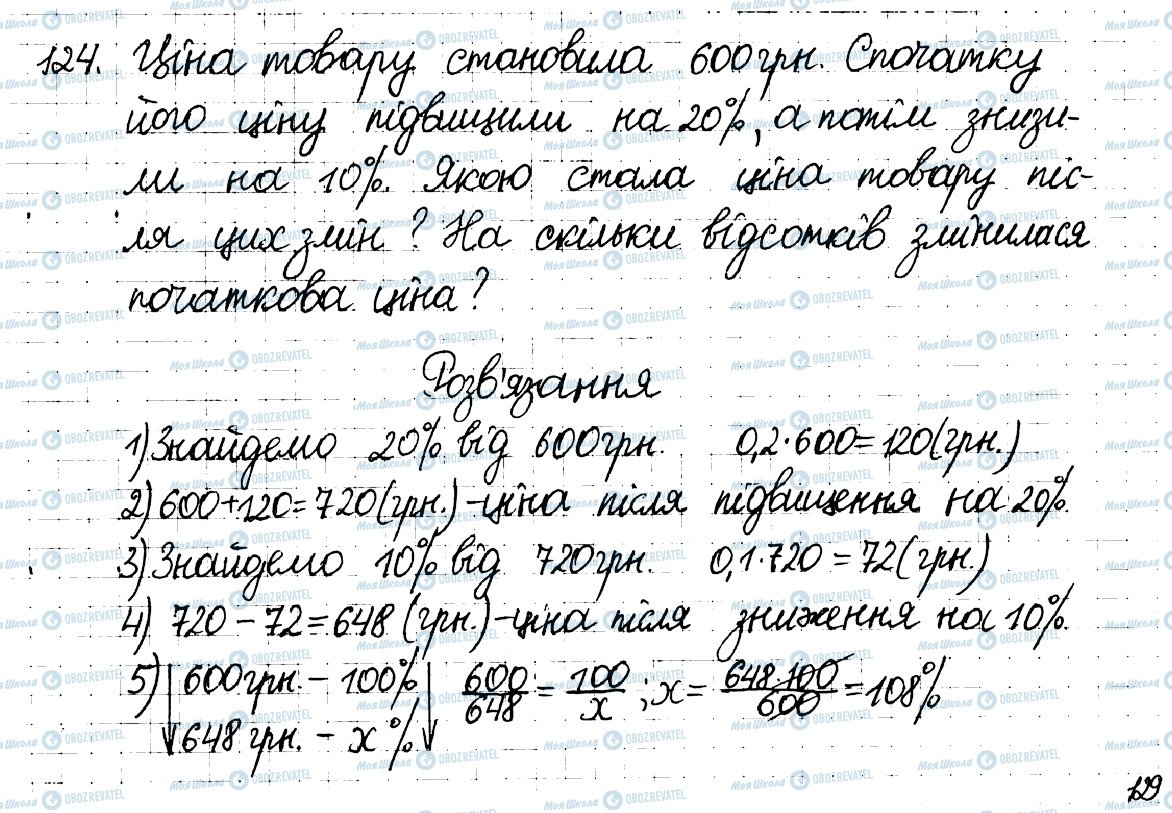 124. Ціна товару становила 600 грн. Спочатку
його ціну підвищили на 20%, а потім знизи-
ли на 10%. Якою стала ціна товару піс-
ля цих змін? На скільки відсотків змінилася
початкова ціна?
Розв'язання
1) Знайдемо 20% від 600 грн. 0,2·600=120(грн.)
2) 600+120=720(грн.)-ціна після підвищення на 20%.
3) Знайдемо 10% від 720 грн. 0,1·720=72(грн.)
4) 720-72=648(грн.)-ціна після зниження на 10%.
5) 600 грн. - 100% 600/648 = 100/x ; x = 648·100/600 = 108%
648 грн. - x%
129
МояШкола OBOZREVATEL